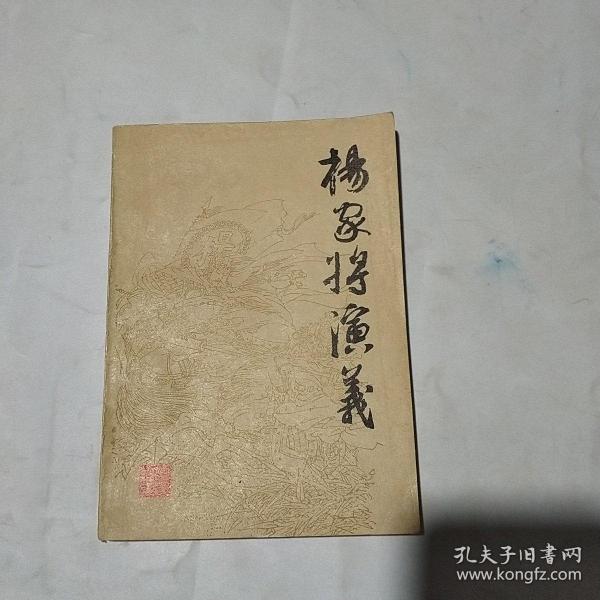 楊家将演義
孔夫子旧書网
www.kongfz.com